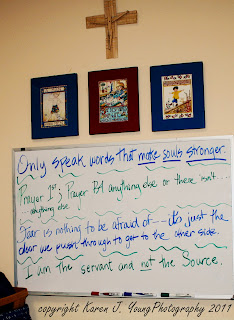 Only speak words that make souls stronger.
Prayer 1st; Prayer B4 anything else or there isn't
anything else.
Fear is nothing to be afraid of --- it's just the
door we push through to get to the other side.
I am the servant and not the Source.
copyright Karen J. YoungPhotography 2011